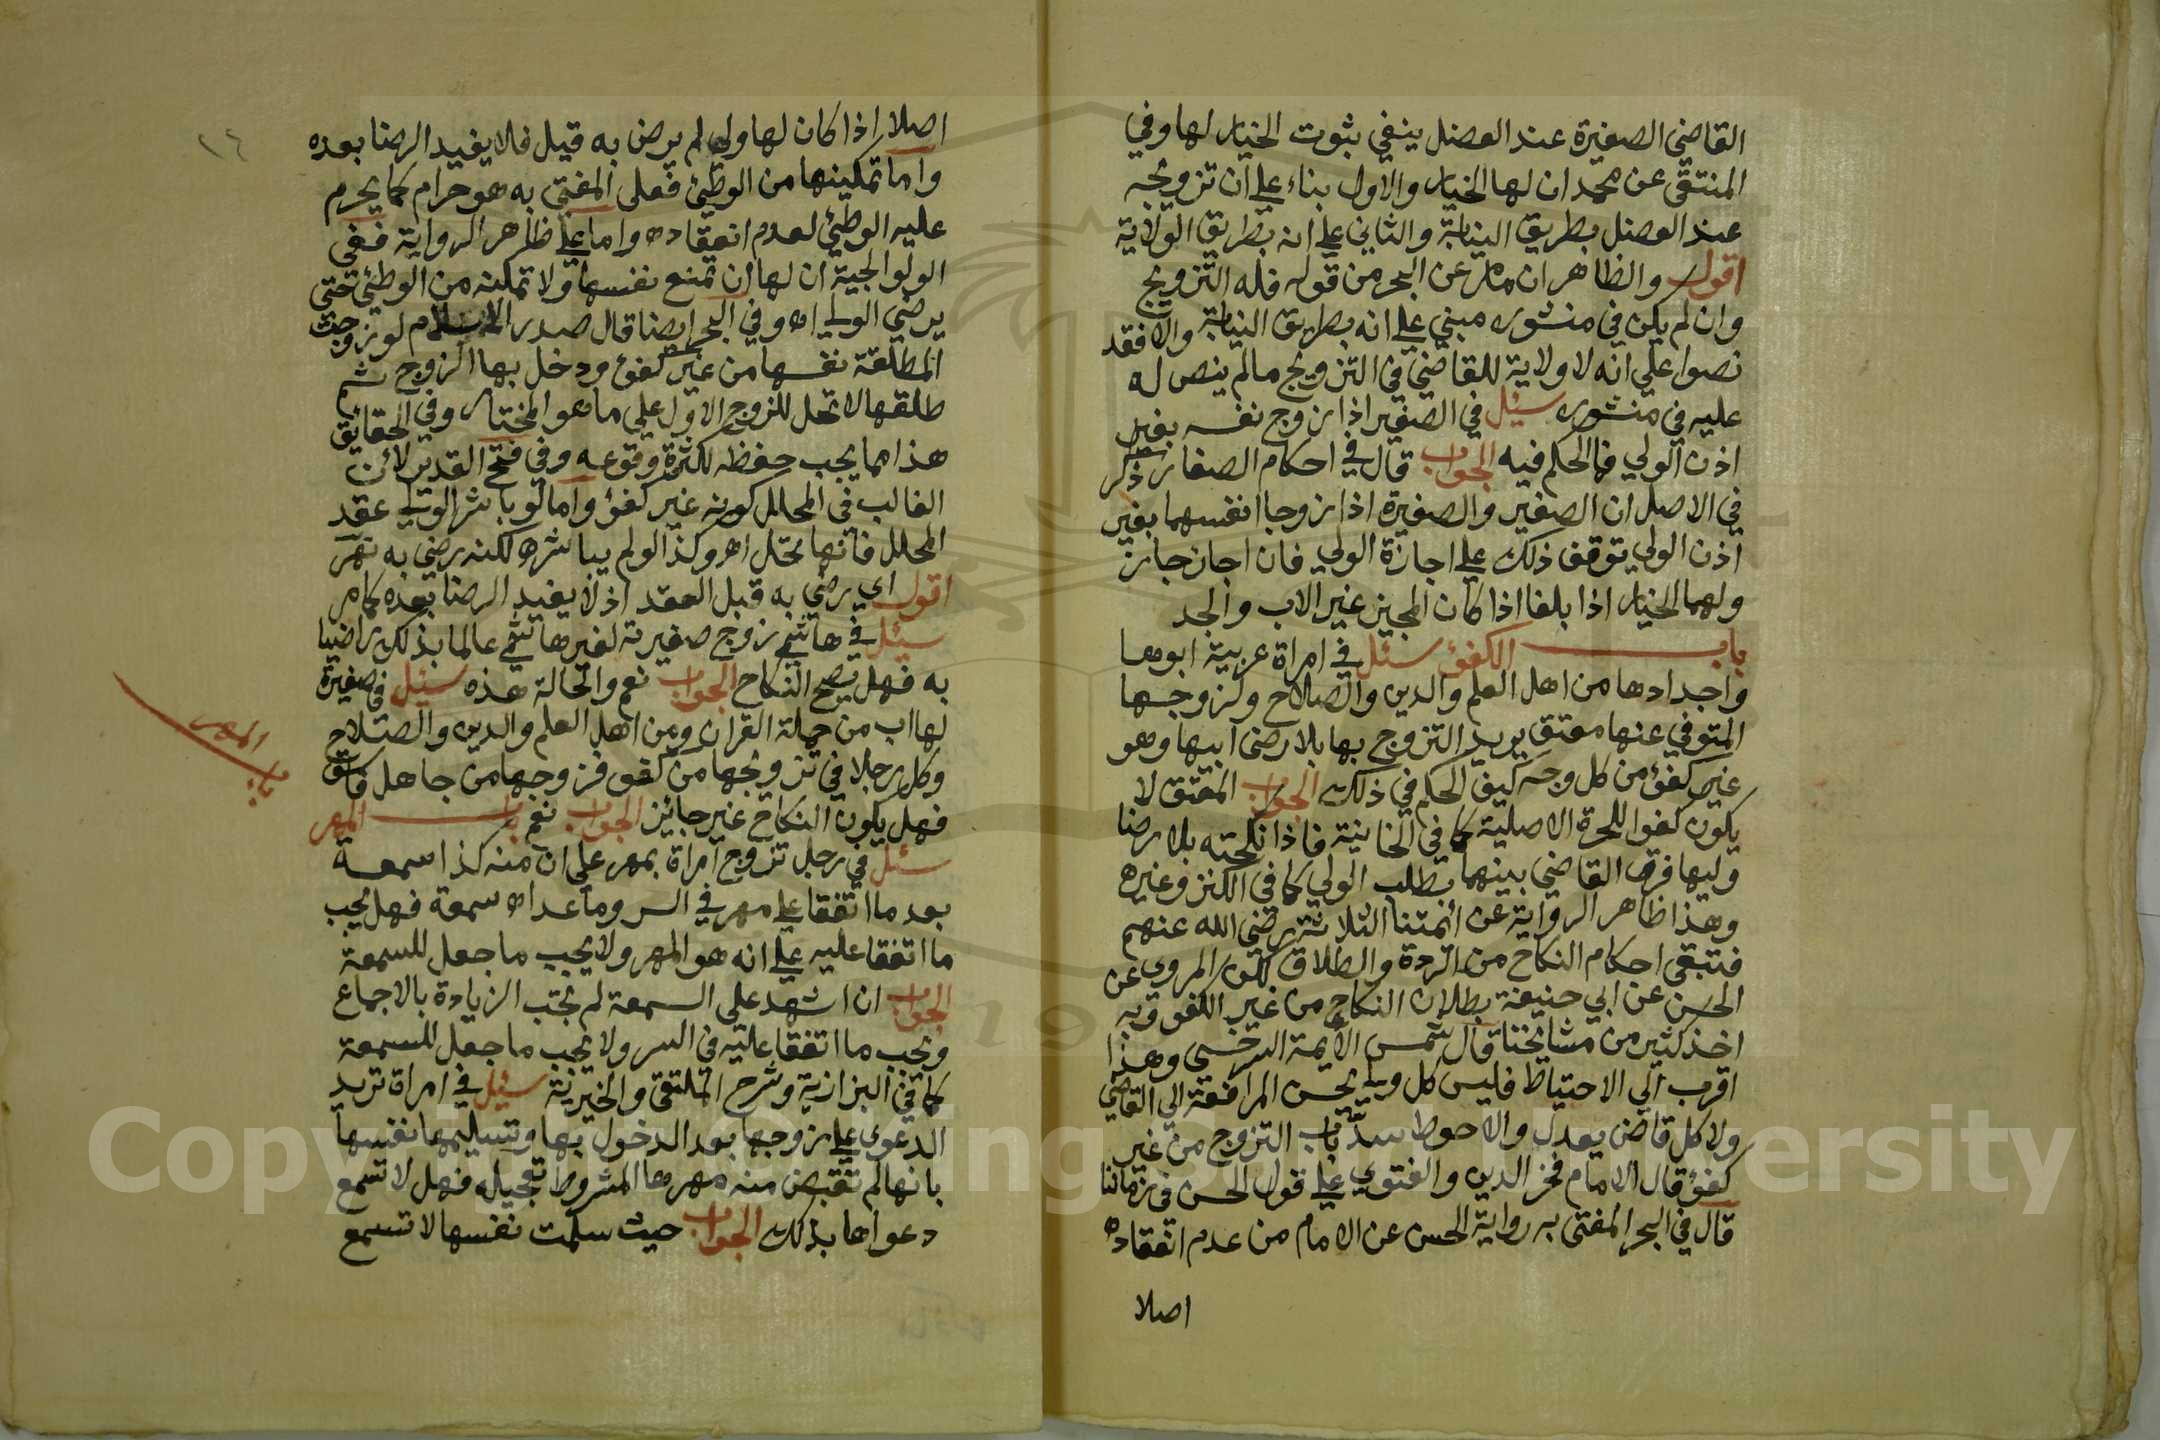 القاضي الصغيرة عند العضل ينفي ثبوت الخيار لها وفي
المنتقى عن محمد ان لها الخيار والاول بناء على ان تزويجه
عند العضل بطريق النيابة والثاني على انه بطريق الولاية
اقول والظاهر ان ما مر عن البحر من قوله فله التزويج
وان لم يكن في منشوره مبني على انه بطريق النيابة والا فقد
نصوا على انه لا ولاية للقاضي في التزويج ما لم ينص له
عليه في منشوره سئل في الصغير اذا زوج نفسه بغير
اذن الولي فما الحكم فيه الجواب قال في احكام الصغار ذكر
في الاصل ان الصغير والصغيرة اذا زوجا انفسهما بغير
اذن الولي توقف ذلك على اجازة الولي فان اجاز جاز
ولهما الخيار اذا بلغا اذا كان المجيز غير الاب والجد
باب الكفؤ سئل في امراة عربية ابوها
واجدادها من اهل العلم والدين والصلاح ولزوجها
المتوفي عنها معتق يريد التزوج بها بلا رضى ابيها وهو
غير كفؤ من كل وجه كيف الحكم في ذلك الجواب المعتق لا
يكون كفوا للحرة الاصلية كما في الخانية فاذا نكحته بلا رضا
وليها فرق القاضي بينهما بطلب الولي كما في الكنز وغيره
وهذا ظاهر الرواية عن ائمتنا الثلاثة رضي الله عنهم
فتبقى احكام النكاح من الردة والطلاق لكن المروي عن
الحسن عن ابي حنيفة بطلان النكاح من غير الكفو وبه
اخذ كثير من مشايخنا قال شمس الايمة السرخسي وهذا
اقرب الى الاحتياط فليس كل ولي يحسن المرافعة الى القاضي
ولا كل قاض يعدل والاحوط سد باب التزوج من غير
كفؤ قال الامام فخر الدين والفتوى على قول الحسن في زماننا
قال في البحر المفتى به رواية الحسن عن الامام من عدم انعقاده
اصلا
١٤
اصلا اذا كان لها ولي لم يرض به قبل فلا يفيد الرضا بعده
واما تمكينها من الوطئ فعلى المفتى به هو حرام كما يحرم
عليه الوطئ لعدم انعقاده واما على ظاهر الرواية ففي
الولوالجية ان لها ان تمنع نفسها ولا تمكنه من الوطئ حتى
يرضي الولي اه وفي البحر ايضا قال صدر الاسلام لو زوجت
المطلقة نفسها من غير كفؤ ودخل بها الزوج ثم
طلقها لا تحل للزوج الاول على ما هو المختار وفي الحقائق
هذا مما يجب حفظه لكثرة وقوعه وفي فتح القدير لان
الغالب في المحلل كونه غير كفؤ واما لو باشر الولي عقد
المحلل فانها تحل اه وكذا لو لم يباشره لكنه رضي به نهر
اقول اي رضي به قبل العقد اذ لا يفيد الرضا بعده كما مر
سئل في هاشمي زوج صغيرته لغير هاشمي عالما بذلك راضيا
به فهل يصح النكاح الجواب نعم والحالة هذه سئل في صغيرة
لها اب من حملة القران ومن اهل العلم والدين والصلاح
وكل رجلا في تزويجها من كفو فزوجها من جاهل فاسق
فهل يكون النكاح غير جائز الجواب نعم باب المهر
سئل في رجل تزوج امراة بمهر على ان منه كذا سمعة
بعد ما اتفقا على مهر في السر وما عداه سمعة فهل يجب
ما اتفقا عليه على انه هو المهر ولا يجب ما جعل للسمعة
الجواب ان اشهد على السمعة لم تجب الزيادة بالاجماع
وتجب ما اتفقا عليه في السر ولا يجب ما جعل للسمعة
كما في البزازية وشرح الملتقى والخيرية سئل في امراة تريد
الدعوى على زوجها بعد الدخول بها وتسليمها نفسها
بانها لم تقبض منه مهرها المشروط تعجيله فهل لا تسمع
دعواها بذلك الجواب حيث سلمت نفسها لا تسمع
باب المهر
Copyright © King Saud University